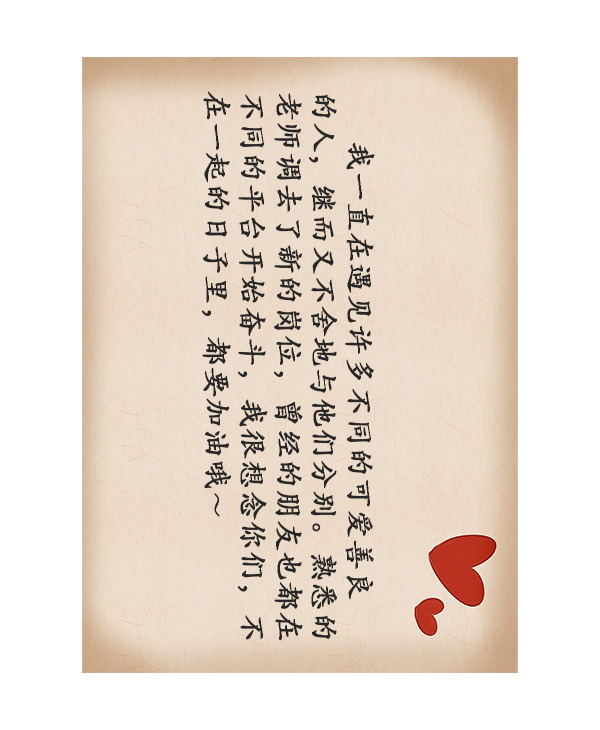 我一直在遇见许多不同的可爱善良
的人，继而又不舍地与他们分别。熟悉的
老师调去了新的岗位，曾经的朋友也都在
不同的平台开始奋斗，我很想念你们，不
在一起的日子里，都要加油哦～